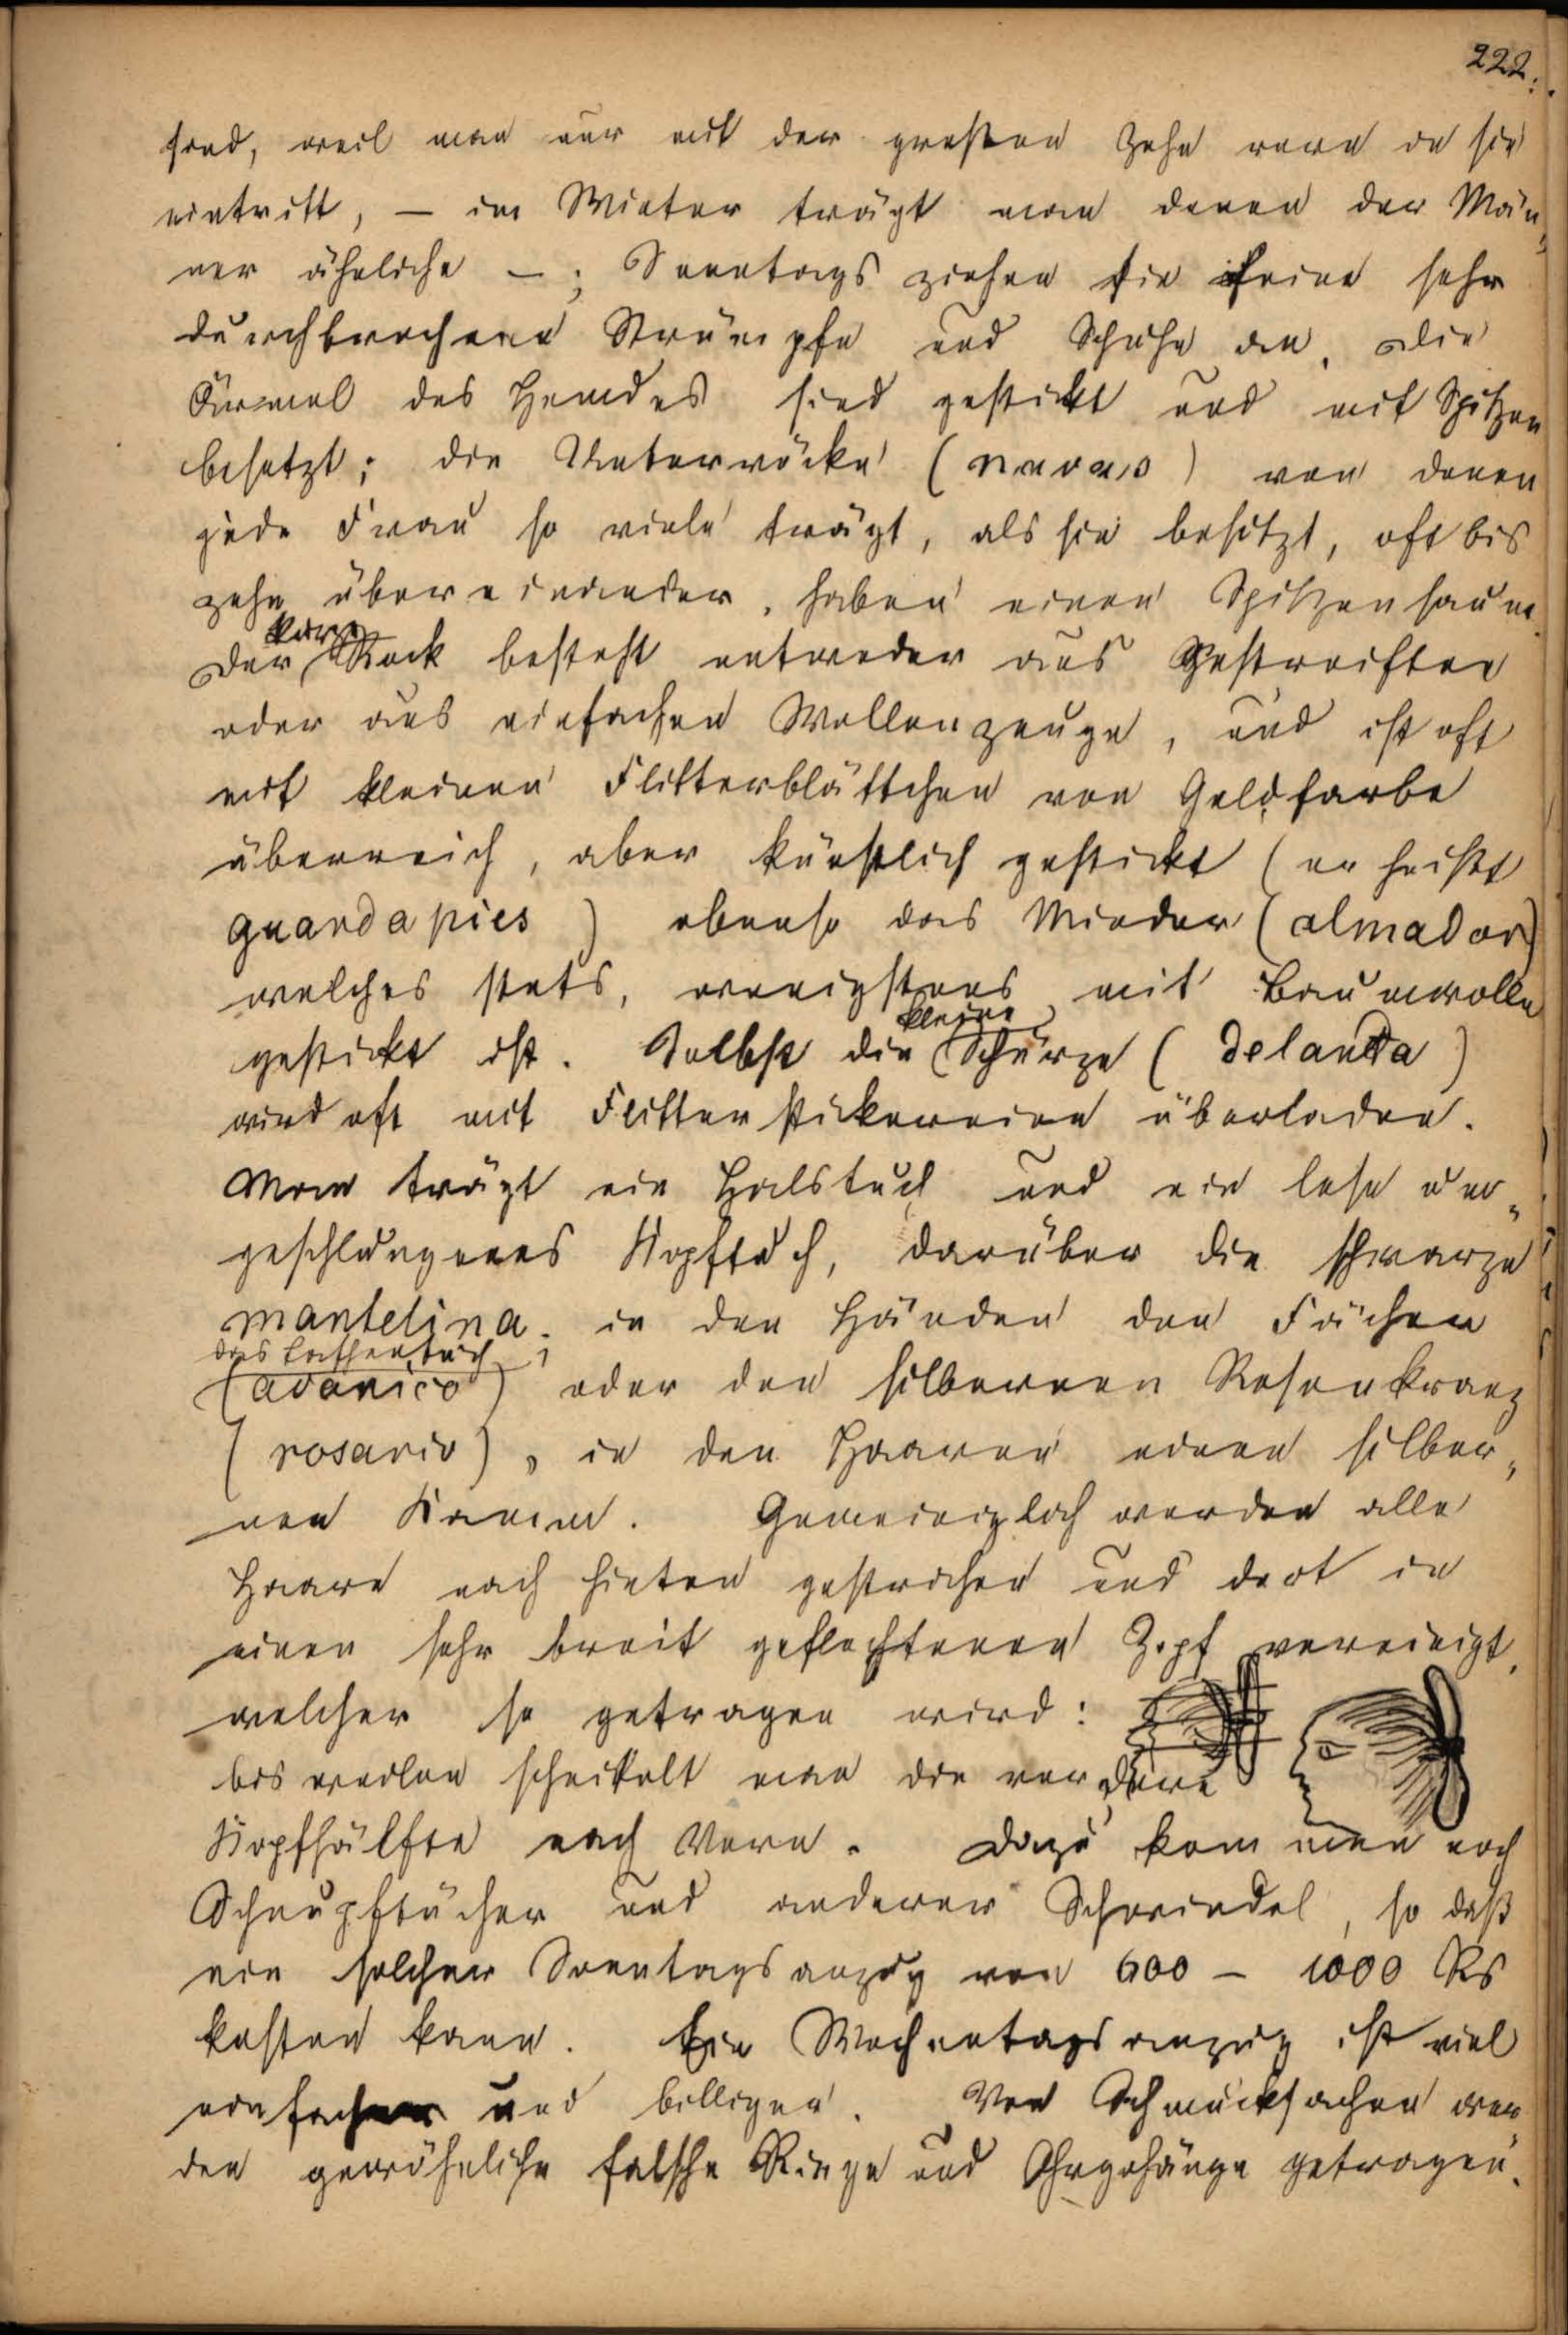 222.
sind, weil man nur mit der großen Zehe vorn in sie
eintritt, — im Winter trägt man denen der Män„
ner ähnliche —; Sonntags ziehen sie feine sehr
durchbrochene Strümpfe und Schuhe an. Die
Ärmel des Hemdes sind gestickt und mit Spitzen
besetzt; die Unterröcke (navas) von denen
jede Frau so viele trägt, als sie besitzt, oft bis
zehn übereinander, haben einen Spitzensaum.
kurze
Der Rock besteht entweder aus Gestreiften
oder aus einfachen Wollenzeuge, und ist oft
mit kleinen Flitterblättchen von Goldfarbe
überreich, aber künstlich gestickt (er heißt
guardapies) ebenso das Mieder (almador)
welches stets, wenigstens mit Baumwolle
kleine
gestickt ist. Selbst die Schürze (delanta)
wird oft mit Flitterstickereien überladen.
Man trägt ein Halstuch und ein lose um„
geschlungenes Kopftuch, darüber die schwarze
mantelina. in den Händen den Fächer
das Taschentuch
(avanico) oder den silbernen Rosenkranz
(rosario), in den Haaren einen silber„
nen Kamm. Gemeiniglich werden alle
Haare nach hinten gestrichen und dort in
einen sehr breit geflochtenen Zopf vereinigt,
welcher so getragen wird:
bisweilen scheitelt man die vordere
Kopfhälfte nach Vorn. Dazu kommen noch
Schnupftücher und anderer Schwindel, so daß
ein solcher Sonntagsanzug von 600 — 1000 Rs
kosten kann. Ein Wochentagsanzug ist viel
einfacher und billiger. Von Schmucksachen wer„
den gewöhnliche falsche Ringe und Ohrgehänge getragen.